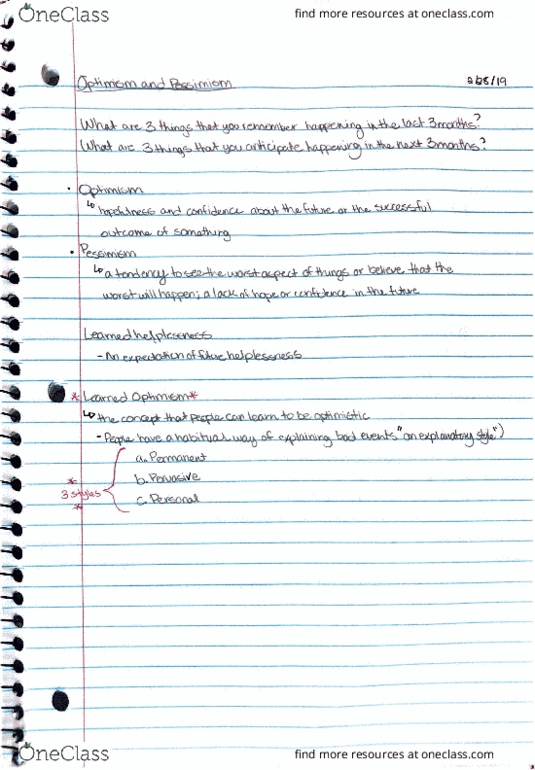 OneClass
find more resources at oneclass.com
Optimism and Pessimism
2/28/19
What are 3 things that you remember happening in the last 3 months?
What are 3 things that you anticipate happening in the next 3 months?
• Optimism
↳ hopefulness and confidence about the future or the successful
outcome of something
• Pessimism
↳ a tendency to see the worst aspect of things or believe that the
worst will happen; a lack of hope or confidence in the future
Learned helplessness
- An expectation of future helplessness
* Learned Optimism *
↳ the concept that people can learn to be optimistic
- People have a habitual way of explaining bad events "an explanatory style")
a. Permanent
b. Pervasive
* 3 styles *
c. Personal
OneClass
find more resources at oneclass.com